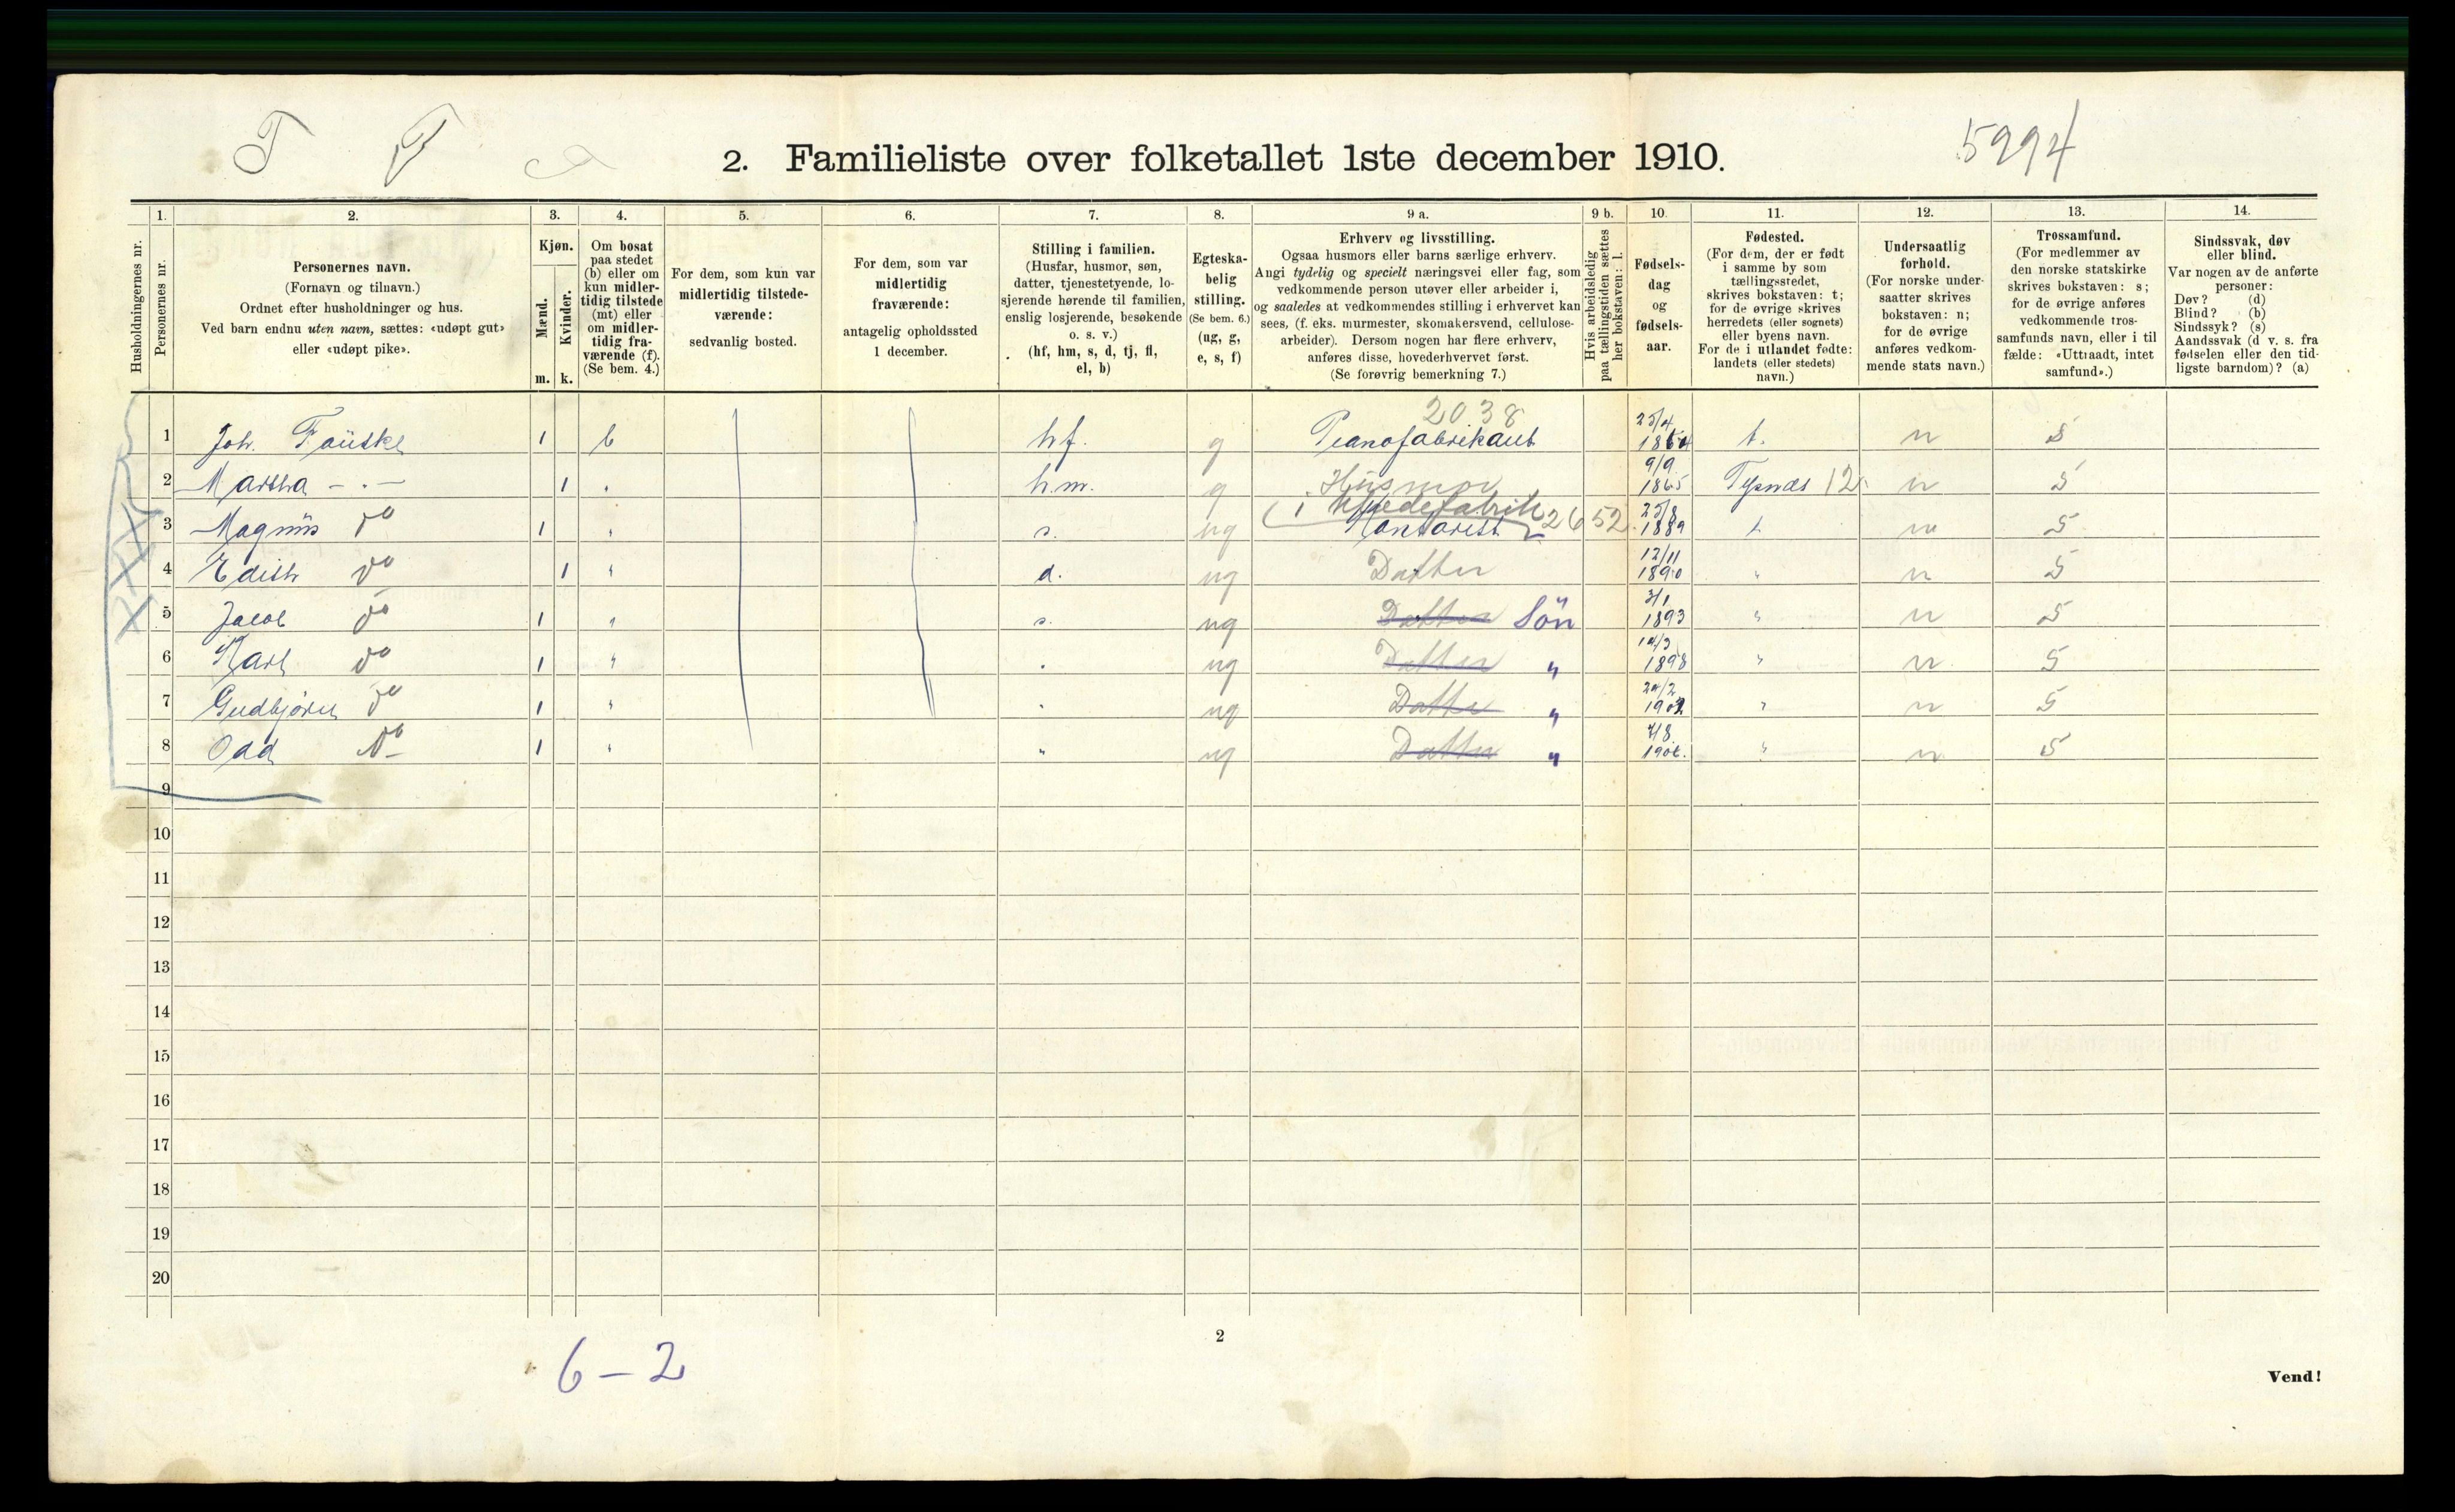 2. Familieliste over folketallet 1ste december 1910.
5994
1. 2. 3. 4. 5. 6. 7. 8. 9 a. 9 b. 10. 11. 12. 13. 14.
Husholdningernes nr.
Personernes nr.
Personernes navn.
(Fornavn og tilnavn.)
Ordnet efter husholdninger og hus.
Ved barn endnu uten navn, sættes: «udøpt gut»
eller «udøpt pike».
Kjøn.
Mænd.
Kvinder.
m. k.
Om bosat
paa stedet
(b) eller om
kun midler-
tidig tilstede
(mt) eller
om midler-
tidig fra-
værende (f).
(Se bem. 4.)
For dem, som kun var
midlertidig tilstede-
værende:
sedvanlig bosted.
For dem, som var
midlertidig
fraværende:
antagelig opholdssted
1 december.
Stilling i familien.
(Husfar, husmor, søn,
datter, tjenestetyende, lo-
sjerende hørende til familien,
enslig losjerende, besøkende
o. s. v.)
(hf, hm, s, d, tj, fl,
el, b)
Egteska-
belig
stilling.
(Se bem. 6.)
(ug, g,
e, s, f)
Erhverv og livsstilling.
Ogsaa husmors eller barns særlige erhverv.
Angi tydelig og specielt næringsvei eller fag, som
vedkommende person utøver eller arbeider i,
og saaledes at vedkommendes stilling i erhvervet kan
sees, (f. eks. murmester, skomakersvend, cellulose-
arbeider). Dersom nogen har flere erhverv,
anføres disse, hovederhvervet først.
(Se forøvrig bemerkning 7.)
Hvis arbeidsledig
paa tællingstiden sættes
her bokstaven: l.
Fødsels-
dag
og
fødsels-
aar.
Fødested.
(For dem, der er født
i samme by som
tællingsstedet,
skrives bokstaven: t;
for de øvrige skrives
herredets (eller sognets)
eller byens navn.
For de i utlandet fødte:
landets (eller stedets)
navn.)
Undersaatlig
forhold.
(For norske under-
saatter skrives
bokstaven: n;
for de øvrige
anføres vedkom-
mende stats navn.)
Trossamfund.
(For medlemmer av
den norske statskirke
skrives bokstaven: s;
for de øvrige anføres
vedkommende tros-
samfunds navn, eller i til-
fælde: «Uttraadt, intet
samfund».)
Sindssvak, døv
eller blind.
Var nogen av de anførte
personer:
Døv? (d)
Blind? (b)
Sindssyk? (s)
Aandssvak (d v. s. fra
fødselen eller den tid-
ligste barndom)? (a)
2038
1 Joh. Fauske 1 b hf. g Pianofabrikant 25/4 1864 t. n S
2 Martha - " - 1 " h.m. g Husmor 9/9 1865 Tysnæs 12 n S
3 Magnus do 1 " s. ug Kontorist 2652 25/8 1889 t. n S
4 Edith do 1 " d. ug Datter 12/11 1890 " n S
5 Jacob do 1 " s. ug Datter Sön 3/1 1893 " n S
6 Karl do 1 " " ug Datter " 14/3 1898 " n S
7 Gudbjørn do 1 " " ug Datter " 24/2 1902 " n S
8 Odd do 1 " " ug Datter " 7/8 " n S
9
10
11
12
13
14
15
16
17
18
19
20
2
6 – 2
Vend!